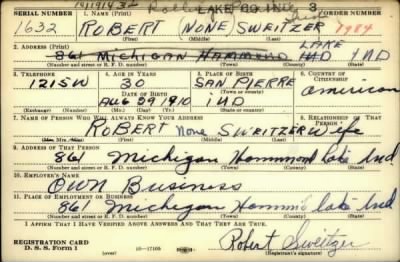 LAKE CO. Ind. 3
SERIAL NUMBER 1. NAME (Print) ORDER NUMBER
1632 ROBERT (NONE) SWEITZER 1984
(First) (Middle) (Last)
2. ADDRESS (Print) LAKE
861 MICHIGAN HAMMOND IND IND
(Number and street or R. F. D. number) (Town) (County) (State)
3. TELEPHONE 4. AGE IN YEARS 5. PLACE OF BIRTH 6. COUNTRY OF CITIZENSHIP
1215W 30 SAN PIERRE American
DATE OF BIRTH (Town or county)
AUG 29 1910 IND
(Exchange) (Number) (Mo.) (Day) (Yr.) (State or country)
7. NAME OF PERSON WHO WILL ALWAYS KNOW YOUR ADDRESS 8. RELATIONSHIP OF THAT PERSON
ROBERT None SWEITZER Wife
(Mr., Mrs., Miss) (First) (Middle) (Last)
9. ADDRESS OF THAT PERSON
861 Michigan Hammond Lake Ind
(Number and street or R. F. D. number) (Town) (County) (State)
10. EMPLOYER'S NAME
OWN Business
11. PLACE OF EMPLOYMENT OR BUSINESS
861 Michigan Hamm. Lake Ind
(Number and street or R. F. D. number) (Town) (County) (State)
I AFFIRM THAT I HAVE VERIFIED ABOVE ANSWERS AND THAT THEY ARE TRUE.
REGISTRATION CARD
D. S. S. Form 1 (over) 16—17105 Robert Sweitzer
(Registrant's signature)